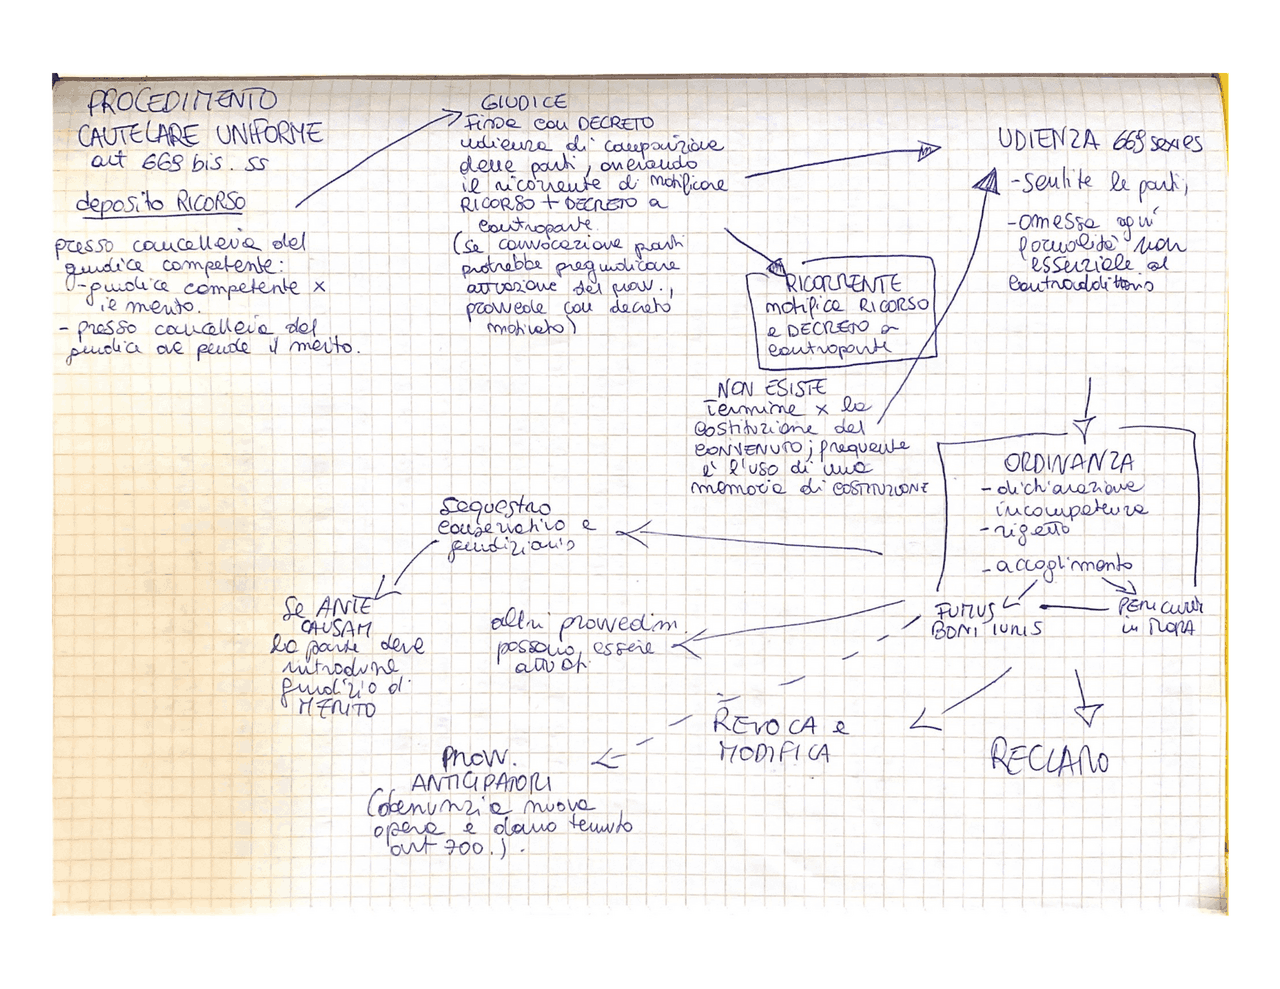 PROCEDIMENTO
CAUTELARE UNIFORME
art 669 bis. ss
deposito RICORSO
presso cancelleria del
giudice competente:
- giudice competente x
il merito.
- presso cancelleria del
giudice ove pende il merito.
GIUDICE
Fissa con DECRETO
udienza di comparizione
delle parti, onerando
il ricorrente di notificare
RICORSO + DECRETO a
controparte
(se convocazione parti
potrebbe pregiudicare
attuazione del provv.,
provvede con decreto
motivato)
RICORRENTE
notifica RICORSO
e DECRETO a
controparte
UDIENZA 669 sexies
- sentite le parti,
- omessa ogni
formalità non
essenziale al
contraddittorio
NON ESISTE
termine x la
costituzione del
CONVENUTO; frequente
è l'uso di una
memoria di COSTITUZIONE
ORDINANZA
- dichiarazione
incompetenza
- rigetto
- accoglimento
FUMUS
BONI IURIS
PERICULUM
in MORA
sequestro
conservativo e
giudiziario
Se ANTE
CAUSAM
la parte deve
introdurre
giudizio di
MERITO
altri provvedim
possono essere
attuati
REVOCA e
MODIFICA
RECLAMO
PROVV.
ANTICIPATORI
(denunzia nuova
opera e danno temuto
art 700.).